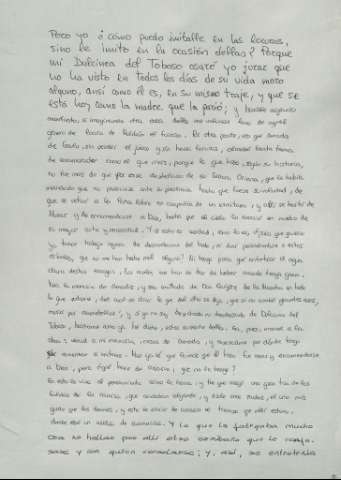 Pero yo ¿cómo puedo imitalle en las locuras,
si no le imito en la ocasión dellas? Porque
mi Dulcinea del Toboso osaré yo jurar que
no ha visto en todos los días de su vida moro
alguno, ansí como él es, en su mismo traje, y que se
está hoy como la madre que la parió; y
imaginando otra cosa della me volviese loco de aquel
género de locura de Roldán el furioso. Por otra parte, veo que Amadís
de Gaula, sin perder el juicio y sin hacer locuras, alcanzó tanta fama
de enamorado como el que más; porque lo que hizo, según su historia,
no fue más de que por verse desdeñado de su señora Oriana, que le había
mandado que no pareciese ante su presencia hasta que fuese su voluntad, de
que se retiró a la Peña Pobre en compañía de un ermitaño, y allí se hartó de
llorar y de encomendarse a Dios, hasta que el cielo le acorrió en medio de
su mayor cuita y necesidad. Y si esto es verdad, como lo es, ¿para qué quiero
yo tomar trabajo agora de desnudarme del todo, ni dar pesadumbre a estos
árboles, que no me han hecho mal alguno? Ni tengo para qué enturbiar el agua
clara destos arroyos, los cuales me han de dar de beber cuando tenga gana.
Viva la memoria de Amadís, y sea imitado de Don Quijote de la Mancha en todo
lo que pudiere, del cual se dirá lo que del otro se dijo, que si no acabó grandes cosas,
murió por acometellas; y si yo no soy desechado ni desdeñado de Dulcinea del
Toboso, bástame, como ya he dicho, estar ausente della. Ea, pues, manos a la
obra: venid a mi memoria, cosas de Amadís, y enseñadme por dónde tengo
de comenzar a imitaros. Mas ya sé que lo más que él hizo fue rezar y encomendarse
a Dios; pero ¿qué haré de rosario, que no le tengo?
En esto le vino al pensamiento cómo le haría, y fue que rasgó una gran tira de las
faldas de la camisa, que andaban colgando, y diole once ñudos, el uno más
gordo que los demás, y esto le sirvió de rosario el tiempo que allí estuvo,
donde rezó un millón de avemarías. Y lo que le fatigaba mucho
era no hallar por allí otro ermitaño que le confe-
sase y con quien consolarse; y, así, se entretenía